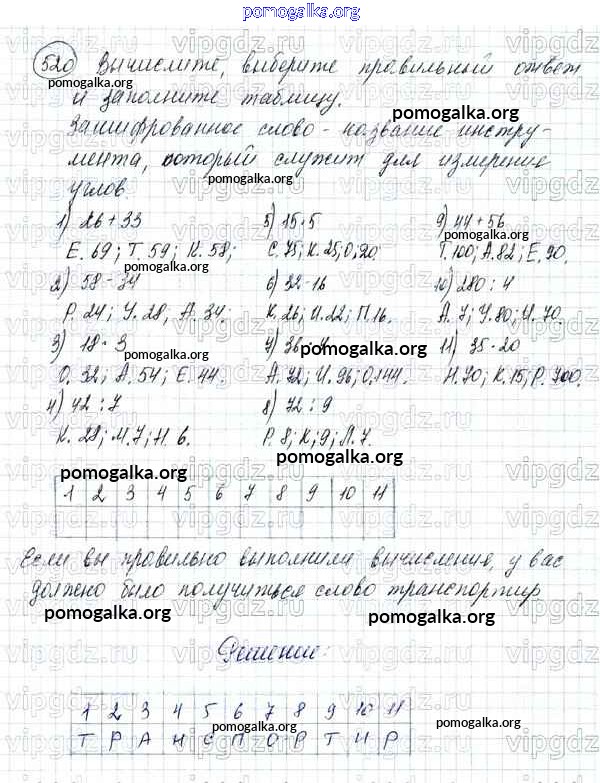 pomogalka.org
520 Вычислите, выберите правильный ответ
pomogalka.org
и заполните таблицу.
pomogalka.org
Зашифрованное слово - название инстру-
мента, который служит для измерения
углов.
pomogalka.org
1) 26 + 33 5) 15 · 5 9) 44 + 56
pomogalka.org
Е. 69; Т. 59; К. 58; С. 75; К. 25; О. 20 Т. 100; А. 82; Е. 90.
pomogalka.org
2) 58 - 34 6) 32 - 16 10) 280 : 4
Р. 24; У. 28; А. 34. К. 26; И. 22; П. 16. А. 7; У. 80; И. 70.
pomogalka.org
3) 18 · 3 7) 36 · 4 11) 35 · 20
pomogalka.org
О. 32; А. 54; Е. 44. А. 72; И. 96; О. 144. Н. 70; К. 15; Р. 700.
4) 42 : 7 8) 72 : 9
К. 28; М. 7; Н. 6. Р. 8; К. 9; Л. 7.
pomogalka.org pomogalka.org
1 2 3 4 5 6 7 8 9 10 11
Если вы правильно выполнили вычисления, у вас
должно было получиться слово транспортир
pomogalka.org pomogalka.org
Решение:
1 2 3 4 5 6 7 8 9 10 11
pomogalka.org pomogalka.org
Т Р А Н С П О Р Т И Р